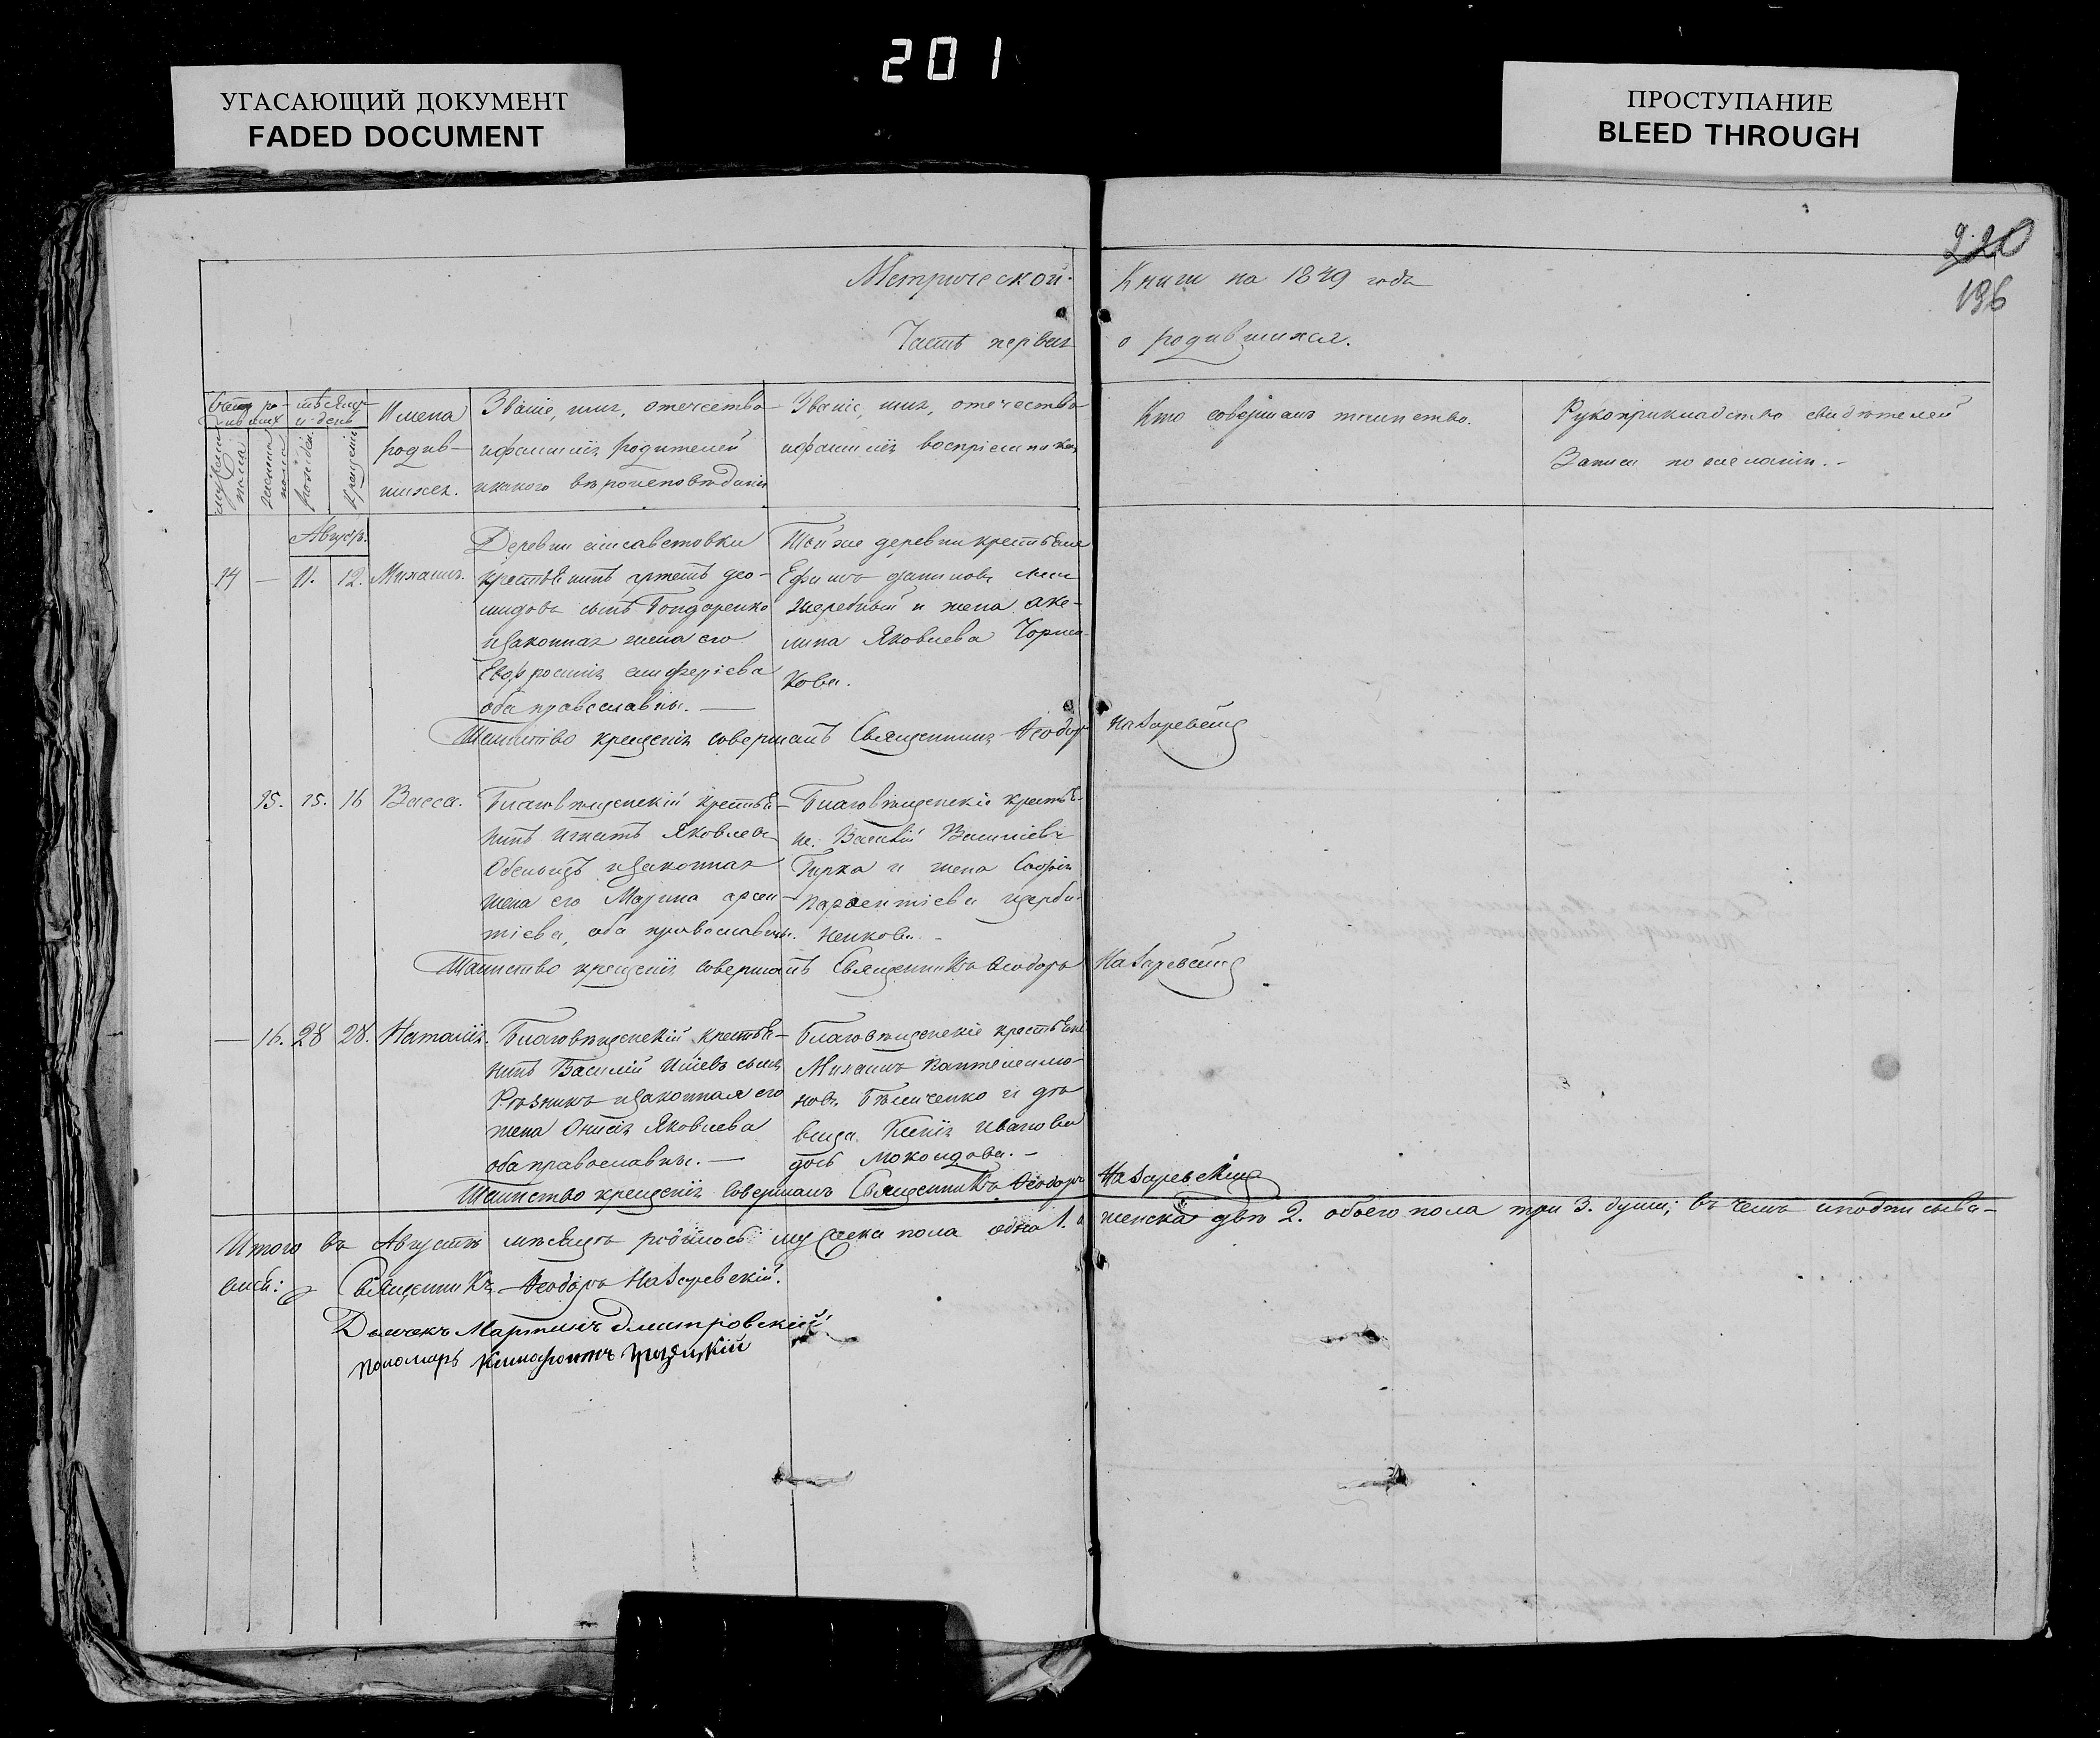 201
УГАСАЮЩИЙ ДОКУМЕНТ
FADED DOCUMENT
ПРОСТУПАНИЕ
BLEED THROUGH
220
196
Метрической Книги на 1849 годъ
Часть первая о родившихся.
мѣсяцъ
и день
Имена
родив-
шихся.
Званіе, имя, отечество
и фамилія родителей
и какого вѣроисповѣданія
Званіе, имя, отечество
и фамилія воспріемниковъ
Кто совершалъ таинство.
Рукоприкладство свидѣтелей
записи по желанію. -
мужеска
пола
женска
пола
рожденія
крещенія
Августъ.
14 — 11. 12. Михаилъ.
Деревни елисаветовки
крестьянинъ
сынъ Бондаренко
и законная жена его
Евфросинія елиферіева
оба православны. —
Той же деревни крестьяне
Ефимъ
и жена аке-
лина Яковлева
кова.
Таинство крещенія совершалъ Священникъ Ѳеодоръ Назаревскій
15. 15. 16 Васса.
Благовѣщенскій крестья-
нинъ игнатъ Яковлевъ
и законная
жена его Марина арсен-
тіева, оба православны.
Благовѣщенскіе крестья-
не. Василій Василіевъ
и жена Софія
нкова. -
Таинство крещенія совершалъ Священникъ Ѳеодоръ Назаревскій
— 16. 28 28. Наталія.
Благовѣщенскій крестья-
нинъ Василій Иліевъ сынъ
Рѣзникъ и законная его
жена Онисія Яковлева
оба православны. —
Благовѣщенскіе крестьяне
Михаилъ Пантелеимо-
новъ Бѣличенко и дѣ-
вица Ксенія Иванова
дочь -
Таинство крещенія совершалъ Священникъ Ѳеодоръ Назаревскій
Итого въ Августѣ мѣсяцѣ родилось мужеска пола одна 1. и женска двѣ 2. обоего пола три 3. души; въ чемъ и подписыва-
емся:
Священникъ Ѳеодоръ Назаревскій.
Дьячекъ Мартинъ Дмитровскій
пономарь Ксенофонтъ